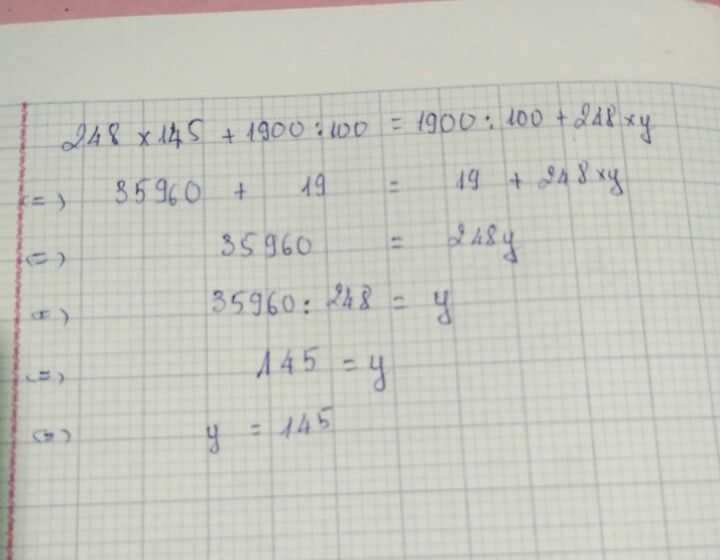 248 × 145 + 1900 : 100 = 1900 : 100 + 248 × y
(=) 35960 + 19 = 19 + 248 × y
(=) 35960 = 248y
(=) 35960 : 248 = y
(=) 145 = y
(=) y = 145